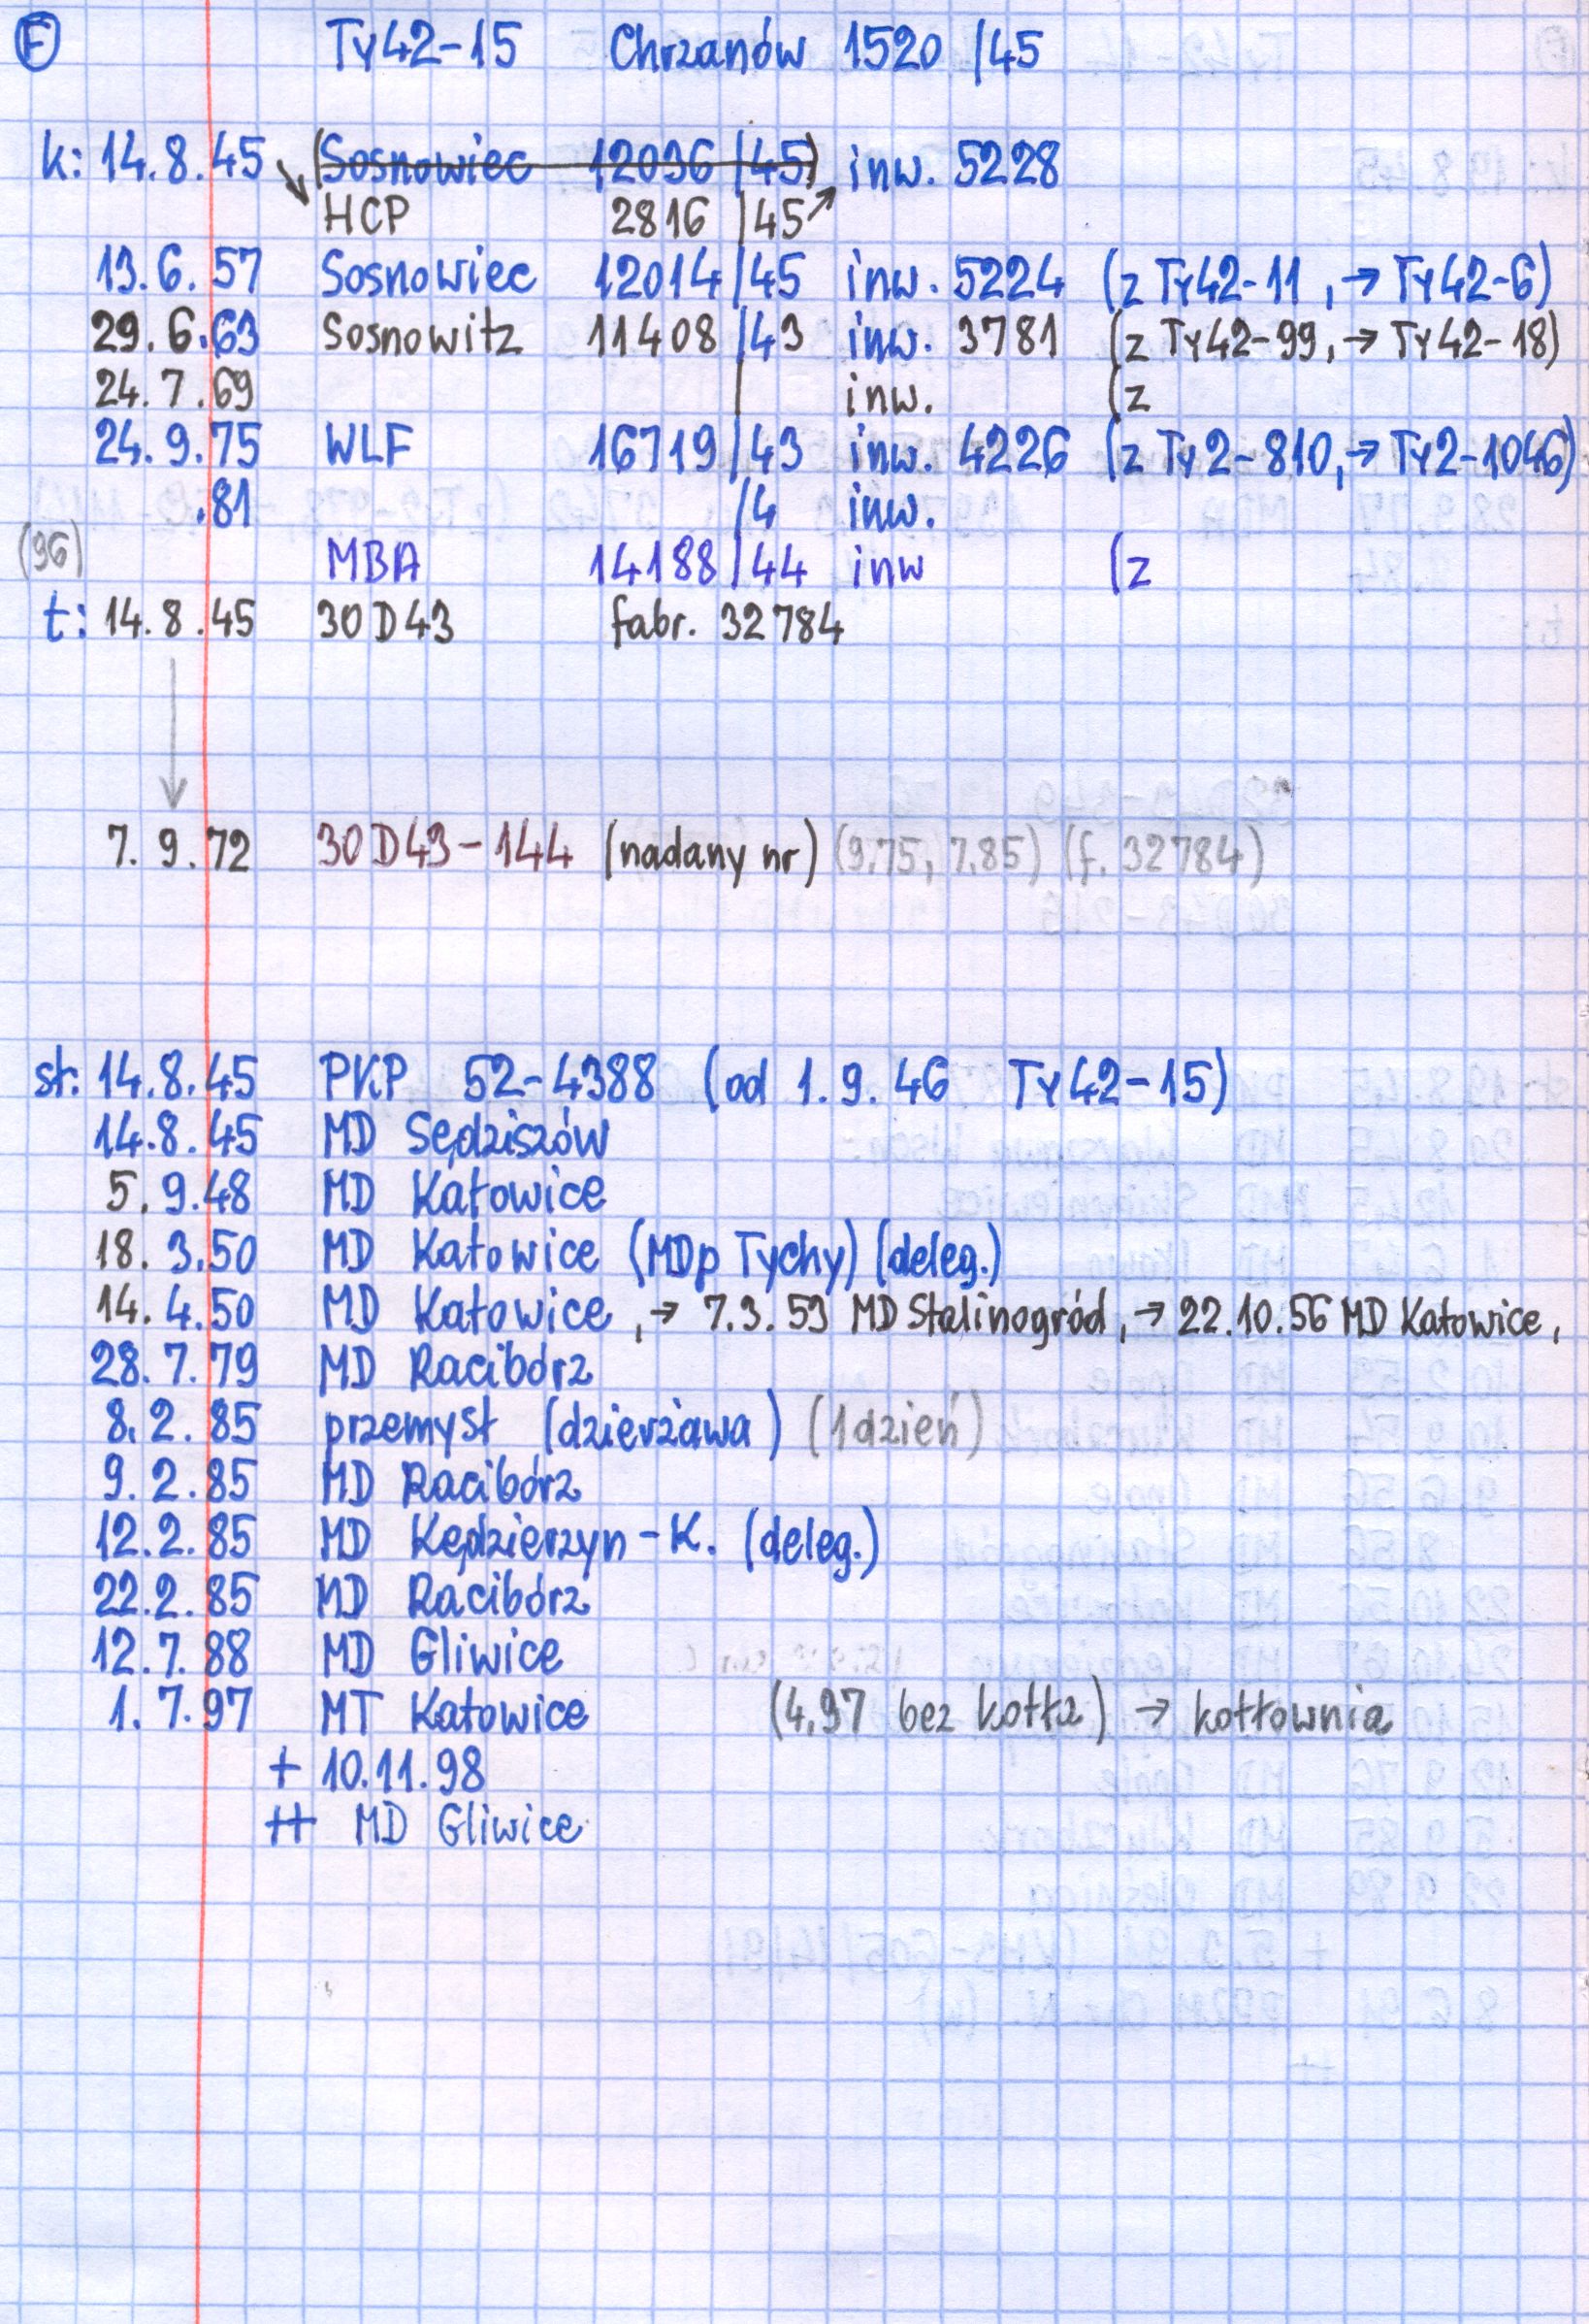 F Ty42-15 Chrzanów 1520 /45
k: 14.8.45 (Sosnowiec 12036 /45) inw. 5228
HCP 2816 /45
13.6.57 Sosnowiec 12014/45 inw. 5224 (z Ty42-11, → Ty42-6)
29.6.63 Sosnowitz 11408/43 inw. 3781 (z Ty42-99, → Ty42-18)
24.7.69 inw. (z
24.9.75 WLF 16719/43 inw. 4226 (z Ty2-810, → Ty2-1046)
.81 /4 inw.
(96) MBA 14188/44 inw (z
t: 14.8.45 30D43 fabr. 32784
7.9.72 30D43-144 (nadany nr) (9.75, 7.85) (f. 32784)
st: 14.8.45 PKP 52-4388 (od 1.9.46 Ty42-15)
14.8.45 MD Sędziszów
5.9.48 MD Katowice
18.3.50 MD Katowice (MDp Tychy) (deleg.)
14.4.50 MD Katowice, → 7.3.53 MD Stalinogród, → 22.10.56 MD Katowice,
28.7.79 MD Racibórz
8.2.85 przemysł (dzierżawa) (1 dzień)
9.2.85 MD Racibórz
12.2.85 MD Kędzierzyn-K. (deleg.)
22.2.85 MD Racibórz
12.7.88 MD Gliwice
1.7.97 MT Katowice (4.97 bez kotła) → kotłownia
+ 10.11.98
++ MD Gliwice